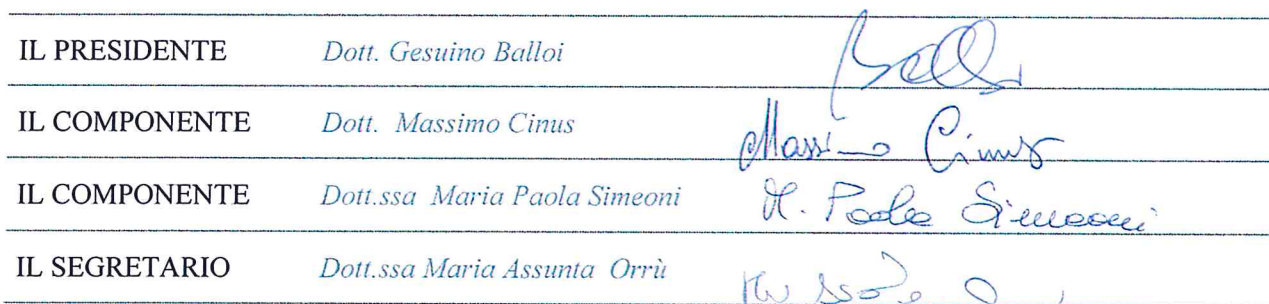 IL PRESIDENTE Dott. Gesuino Balloi Balloi
IL COMPONENTE Dott. Massimo Cinus Massimo Cinus
IL COMPONENTE Dott.ssa Maria Paola Simeoni M. Paola Simeoni
IL SEGRETARIO Dott.ssa Maria Assunta Orrù